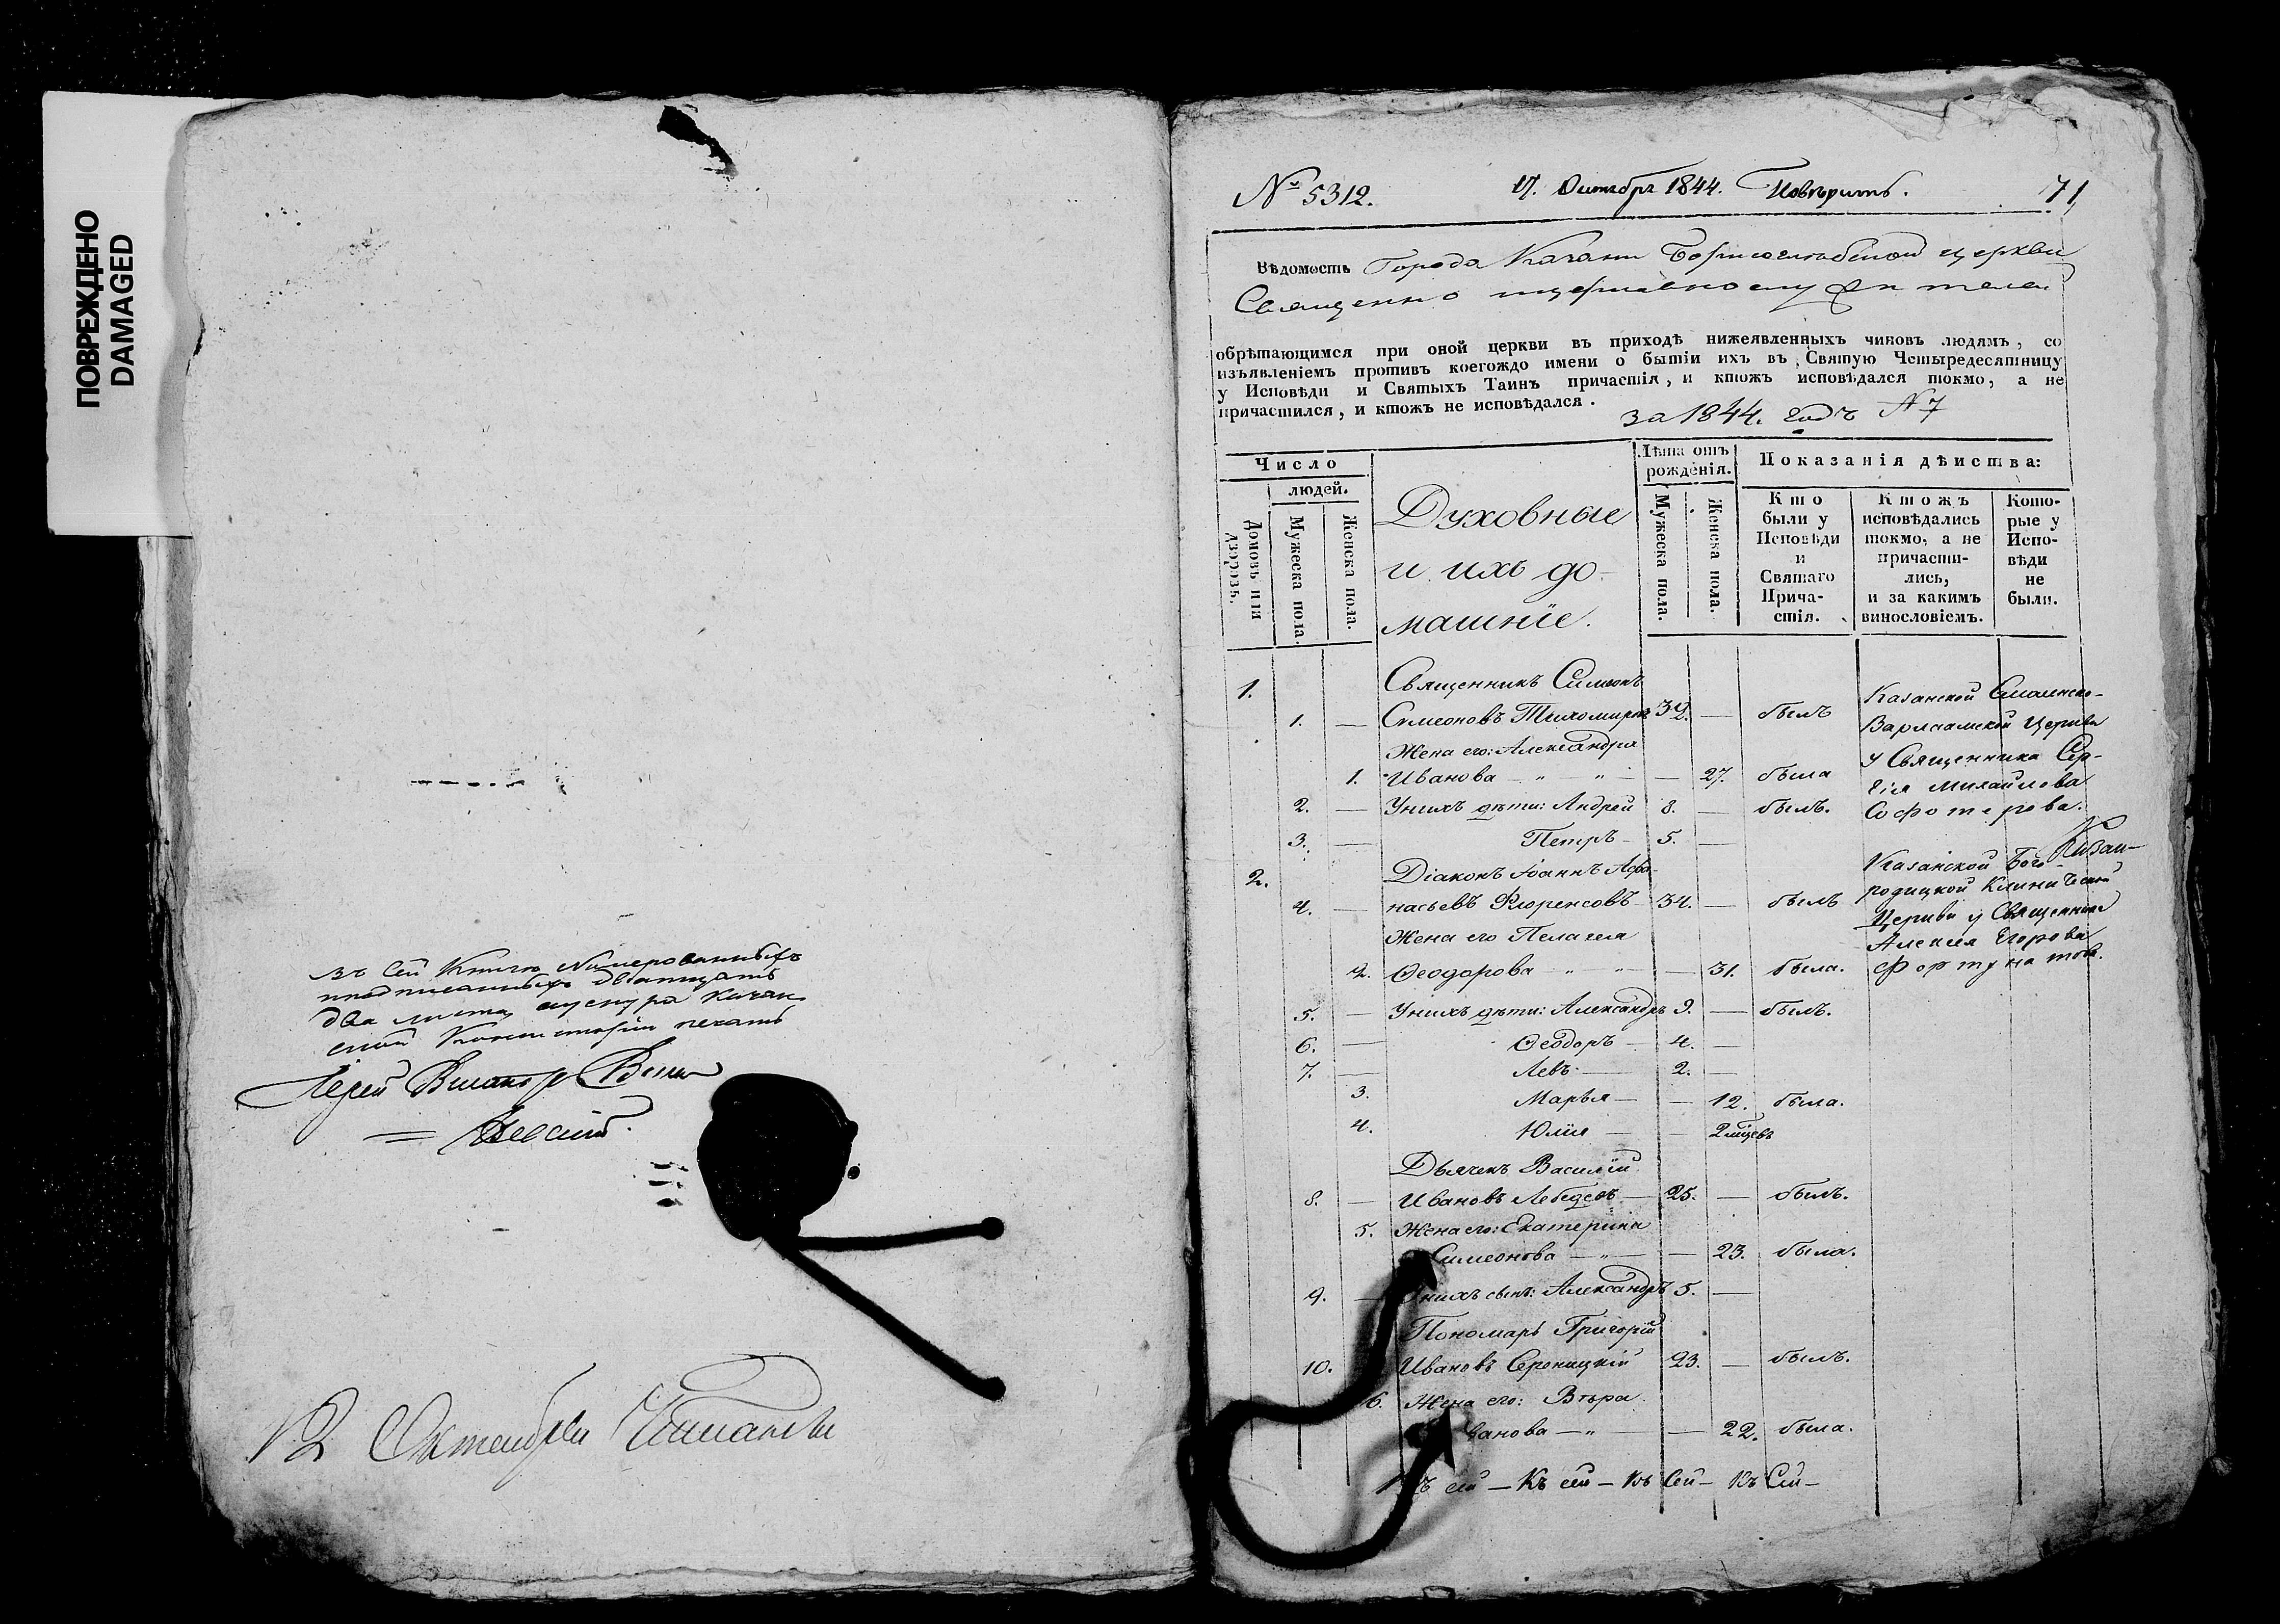 ПОВРЕЖДЕНО
DAMAGED
въ сей книгѣ Нумерованныхъ
два листа
Іерей
№ 5312.
17. Октября 1844. Повѣрить.
71
Вѣдомость Города Казани Борисоглебской церкви
Священно
обрѣтающимся при оной церкви въ приходѣ нижеявленныхъ чиновъ людямъ, со
изъявленіемъ противъ коегождо имени о бытіи ихъ въ Святую Четыредесятницу
у Исповѣди и Святыхъ Таинъ причастія, и ктожъ исповѣдался токмо, а не
причастился, и ктожъ не исповѣдался.
за 1844. годъ N 7
Число
людей.
Домовъ или дворовъ.
Мужеска пола.
Женска пола.
Духовные
и ихъ до-
машніе.
Лѣта отъ
рожденія.
Мужеска пола.
Женска пола.
Показанія дѣйства:
Кто
были у
Исповѣди
и
Святаго
Прича-
стія.
Ктожъ
исповѣдались
токмо, а не
причасти-
лись,
и за какимъ
винословіемъ.
Кото-
рые у
Испо-
вѣди
не
были.
1. Священникъ Симеонъ
1. — Симеоновъ Тихомировъ 32. — былъ
Жена его: Александра
1. Иванова — „ — „ — — 27. была
2. — У нихъ дѣти: Андрей 8. — былъ.
3. — Петръ — 5. —
Казанской Смоленско-
Варлаамской Церкви
у Священника Сер-
гія Михайлова
Софотерова.
2. Діаконъ Іоаннъ Афа-
4. — насьевъ Флоренсовъ — 34. — былъ
Жена его Пелагея
2. Ѳеодорова — „ — „ — — 31. была.
Казанской Бого-
родицкой Клинической
Церкви у Священника
Алексея Егорова
Фортунатова.
5. — У нихъ дѣти: Александръ 9. — былъ.
6. — Ѳеодоръ — 4. —
7. — Левъ — 2. —
3. Марья — — 12. была.
4. Юлія — — 2 мѣсцевъ
Дьячекъ Василій
8. — Ивановъ Лебедевъ — 25. — былъ.
5. Жена его: Екатерина
Симеонова — „ — — 23. была.
9. — У нихъ сынъ: Александръ 5. —
Пономарь Григорій
10. Ивановъ 23. — былъ.
6. Жена его: Вѣра
ванова — „ — — 22. была.
Къ сей — Къ сей — Къ Сей — Къ Сей —